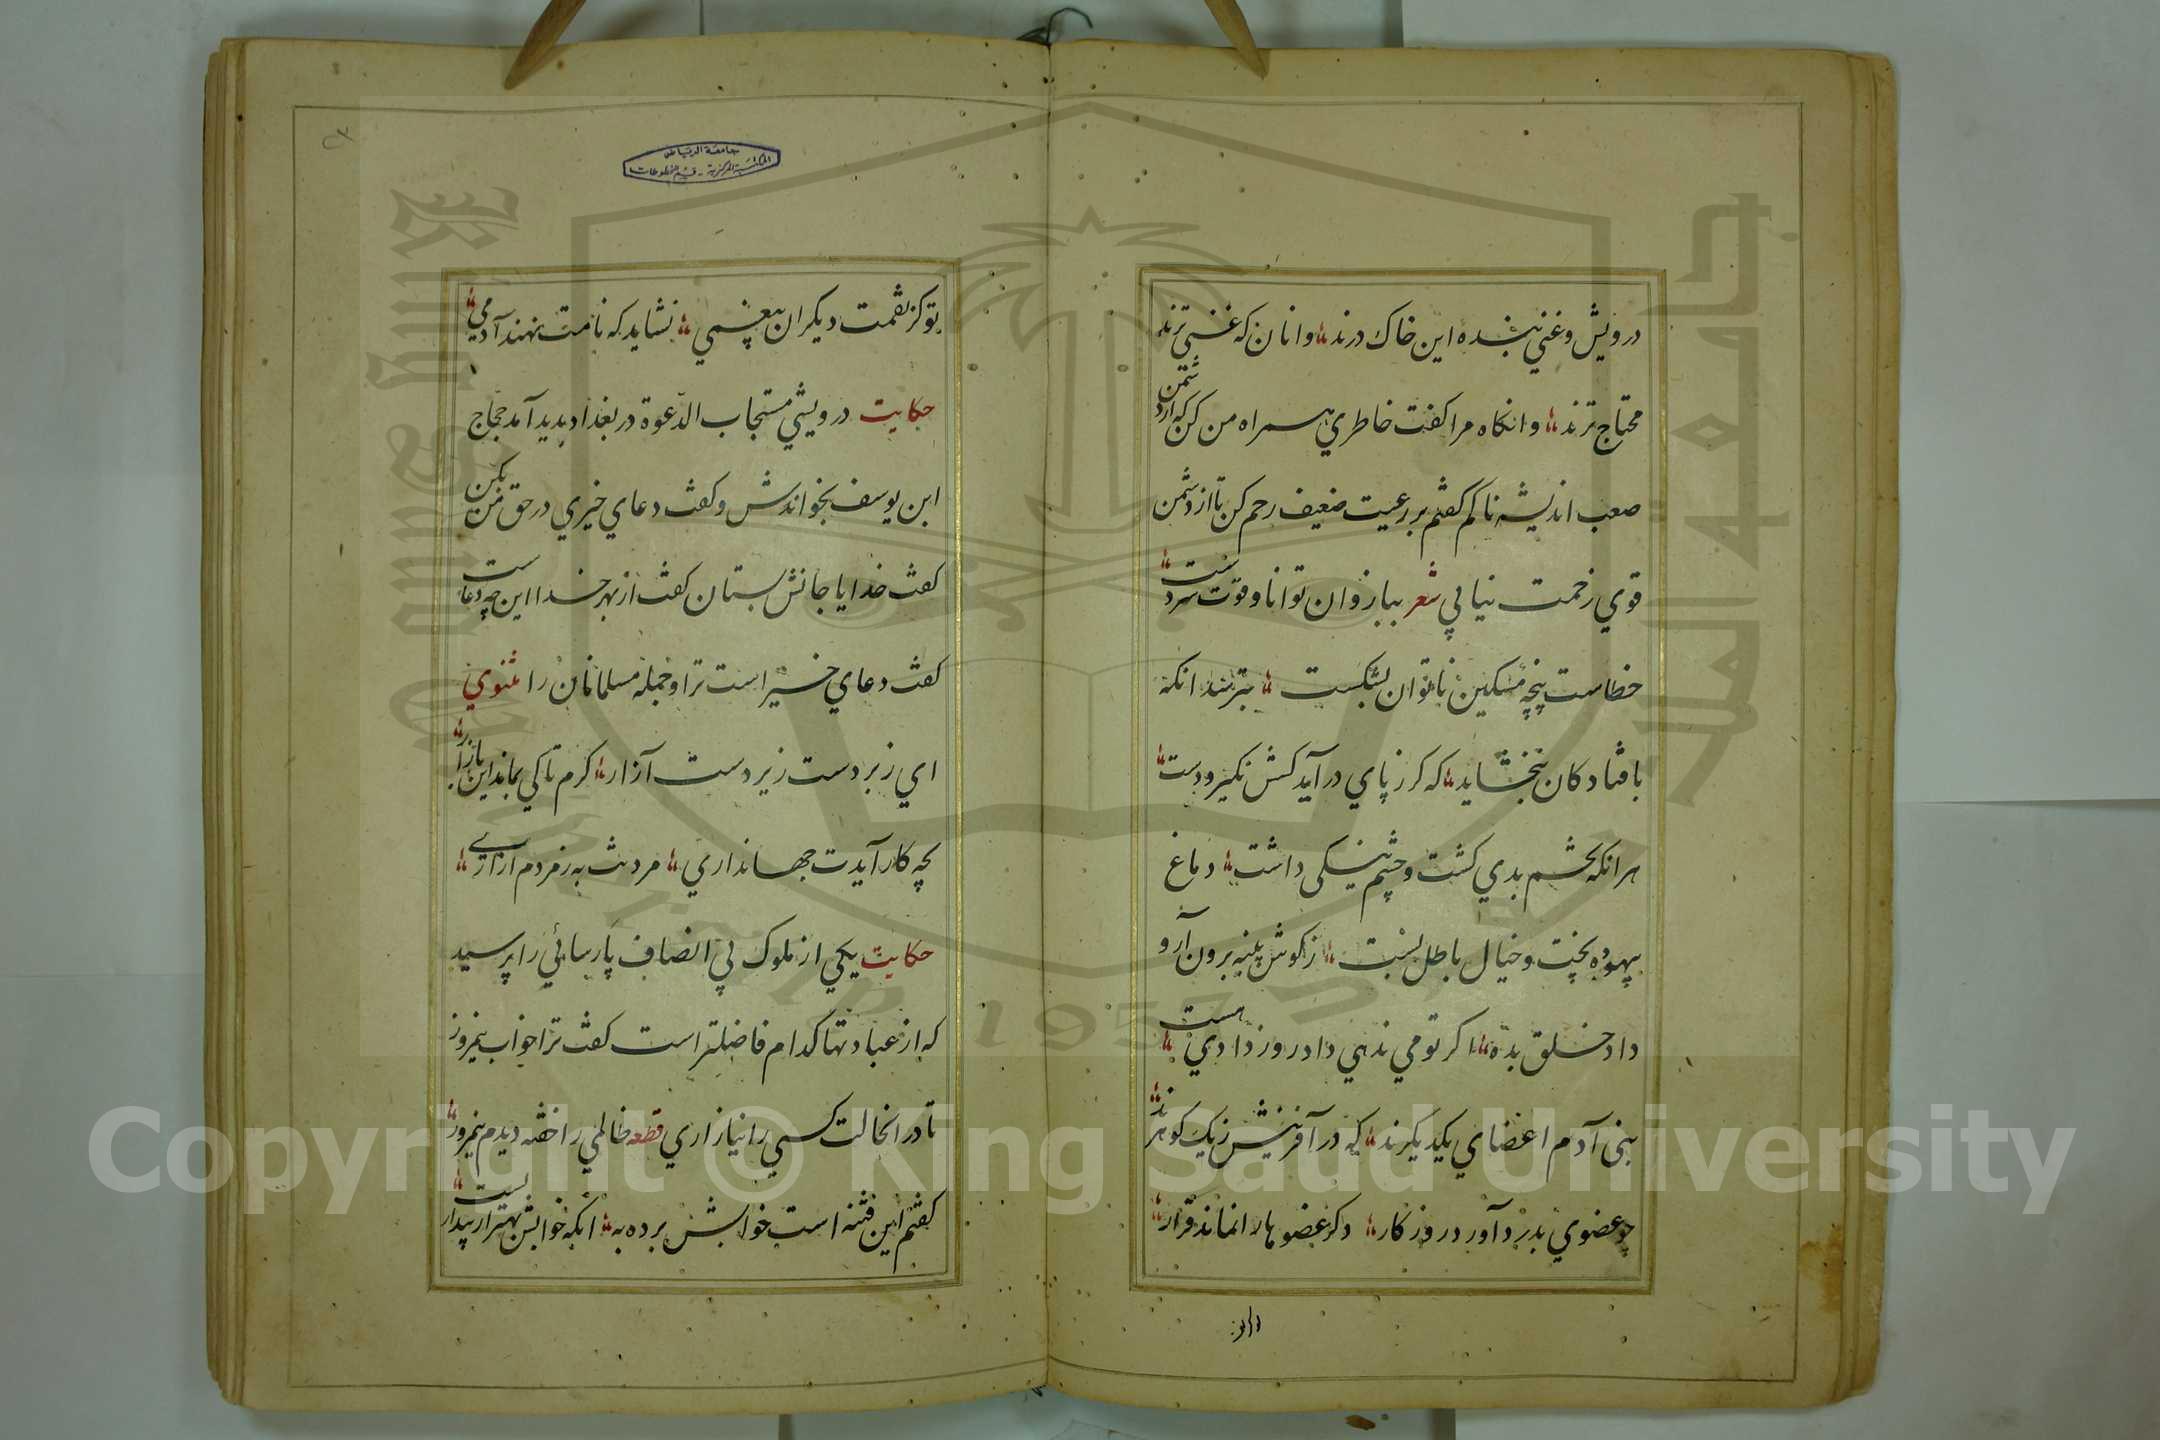 درویش و غني بنده این خاک درند وانان که غني ترند
محتاج ترند وانکاه مرا کفت خاطري همراه من کن که از دشمن
صعب اندیشه ناکم کفتم بر رعیت ضعیف رحم کن تا از دشمن
قوي زحمت نیابي شعر ببازوان توانا و قوت سر دست
خطاست پنجه مسکین ناتوان بشکست بترسد انکه
بافتادکان نبخشاید که کر ز پاي در آید کسش نکیرد دست
هر انکه تخم بدي کشت و چشم نیکی داشت دماغ
بیهوده پخت و خیال باطل بست ز کوش پنبه برون آر و
داد خلق بده اکر تو می ندهي داد روز دادي هست
بنی آدم اعضاي یکدیکرند که در آفرینش ز یک کوهرند
چو عضوي بدرد آورد روزکار دکر عضوها را نماند قرار
جامعة الرياض
المكتبة المركزية - قسم المخطوطات
تو کز نقمت دیکران بیغمي نشاید که نامت نهند آدمي
حکایت درویشي مستجاب الدعوة در بغداد بدید آمد حجاج
ابن یوسف بخواندش و کفت دعاي خیري در حق من بکن
کفت خدایا جانش بستان کفت از بهر خدا این چه دعاست
کفت دعاي خیر است ترا و جمله مسلمانان را مثنوي
اي زبردست زیردست آزار کرم تا کي بماند این بازار
بچه کار آیدت جهانداري مردنت به ز مردم آزاري
حکایت یکي از ملوک بي انصاف پارسائي را پرسید
که از عبادتها کدام فاضلتر است کفت ترا خواب نیمروز
تا در انحالت کسي را نیازاري قطعه ظالمي را خفته دیدم نیمروز
کفتم این فتنه است خوابش برده به انکه خوابش بهتر از بیداریست
Copyright © King Saud University
King Saud University
جامعة الملك سعود
1957